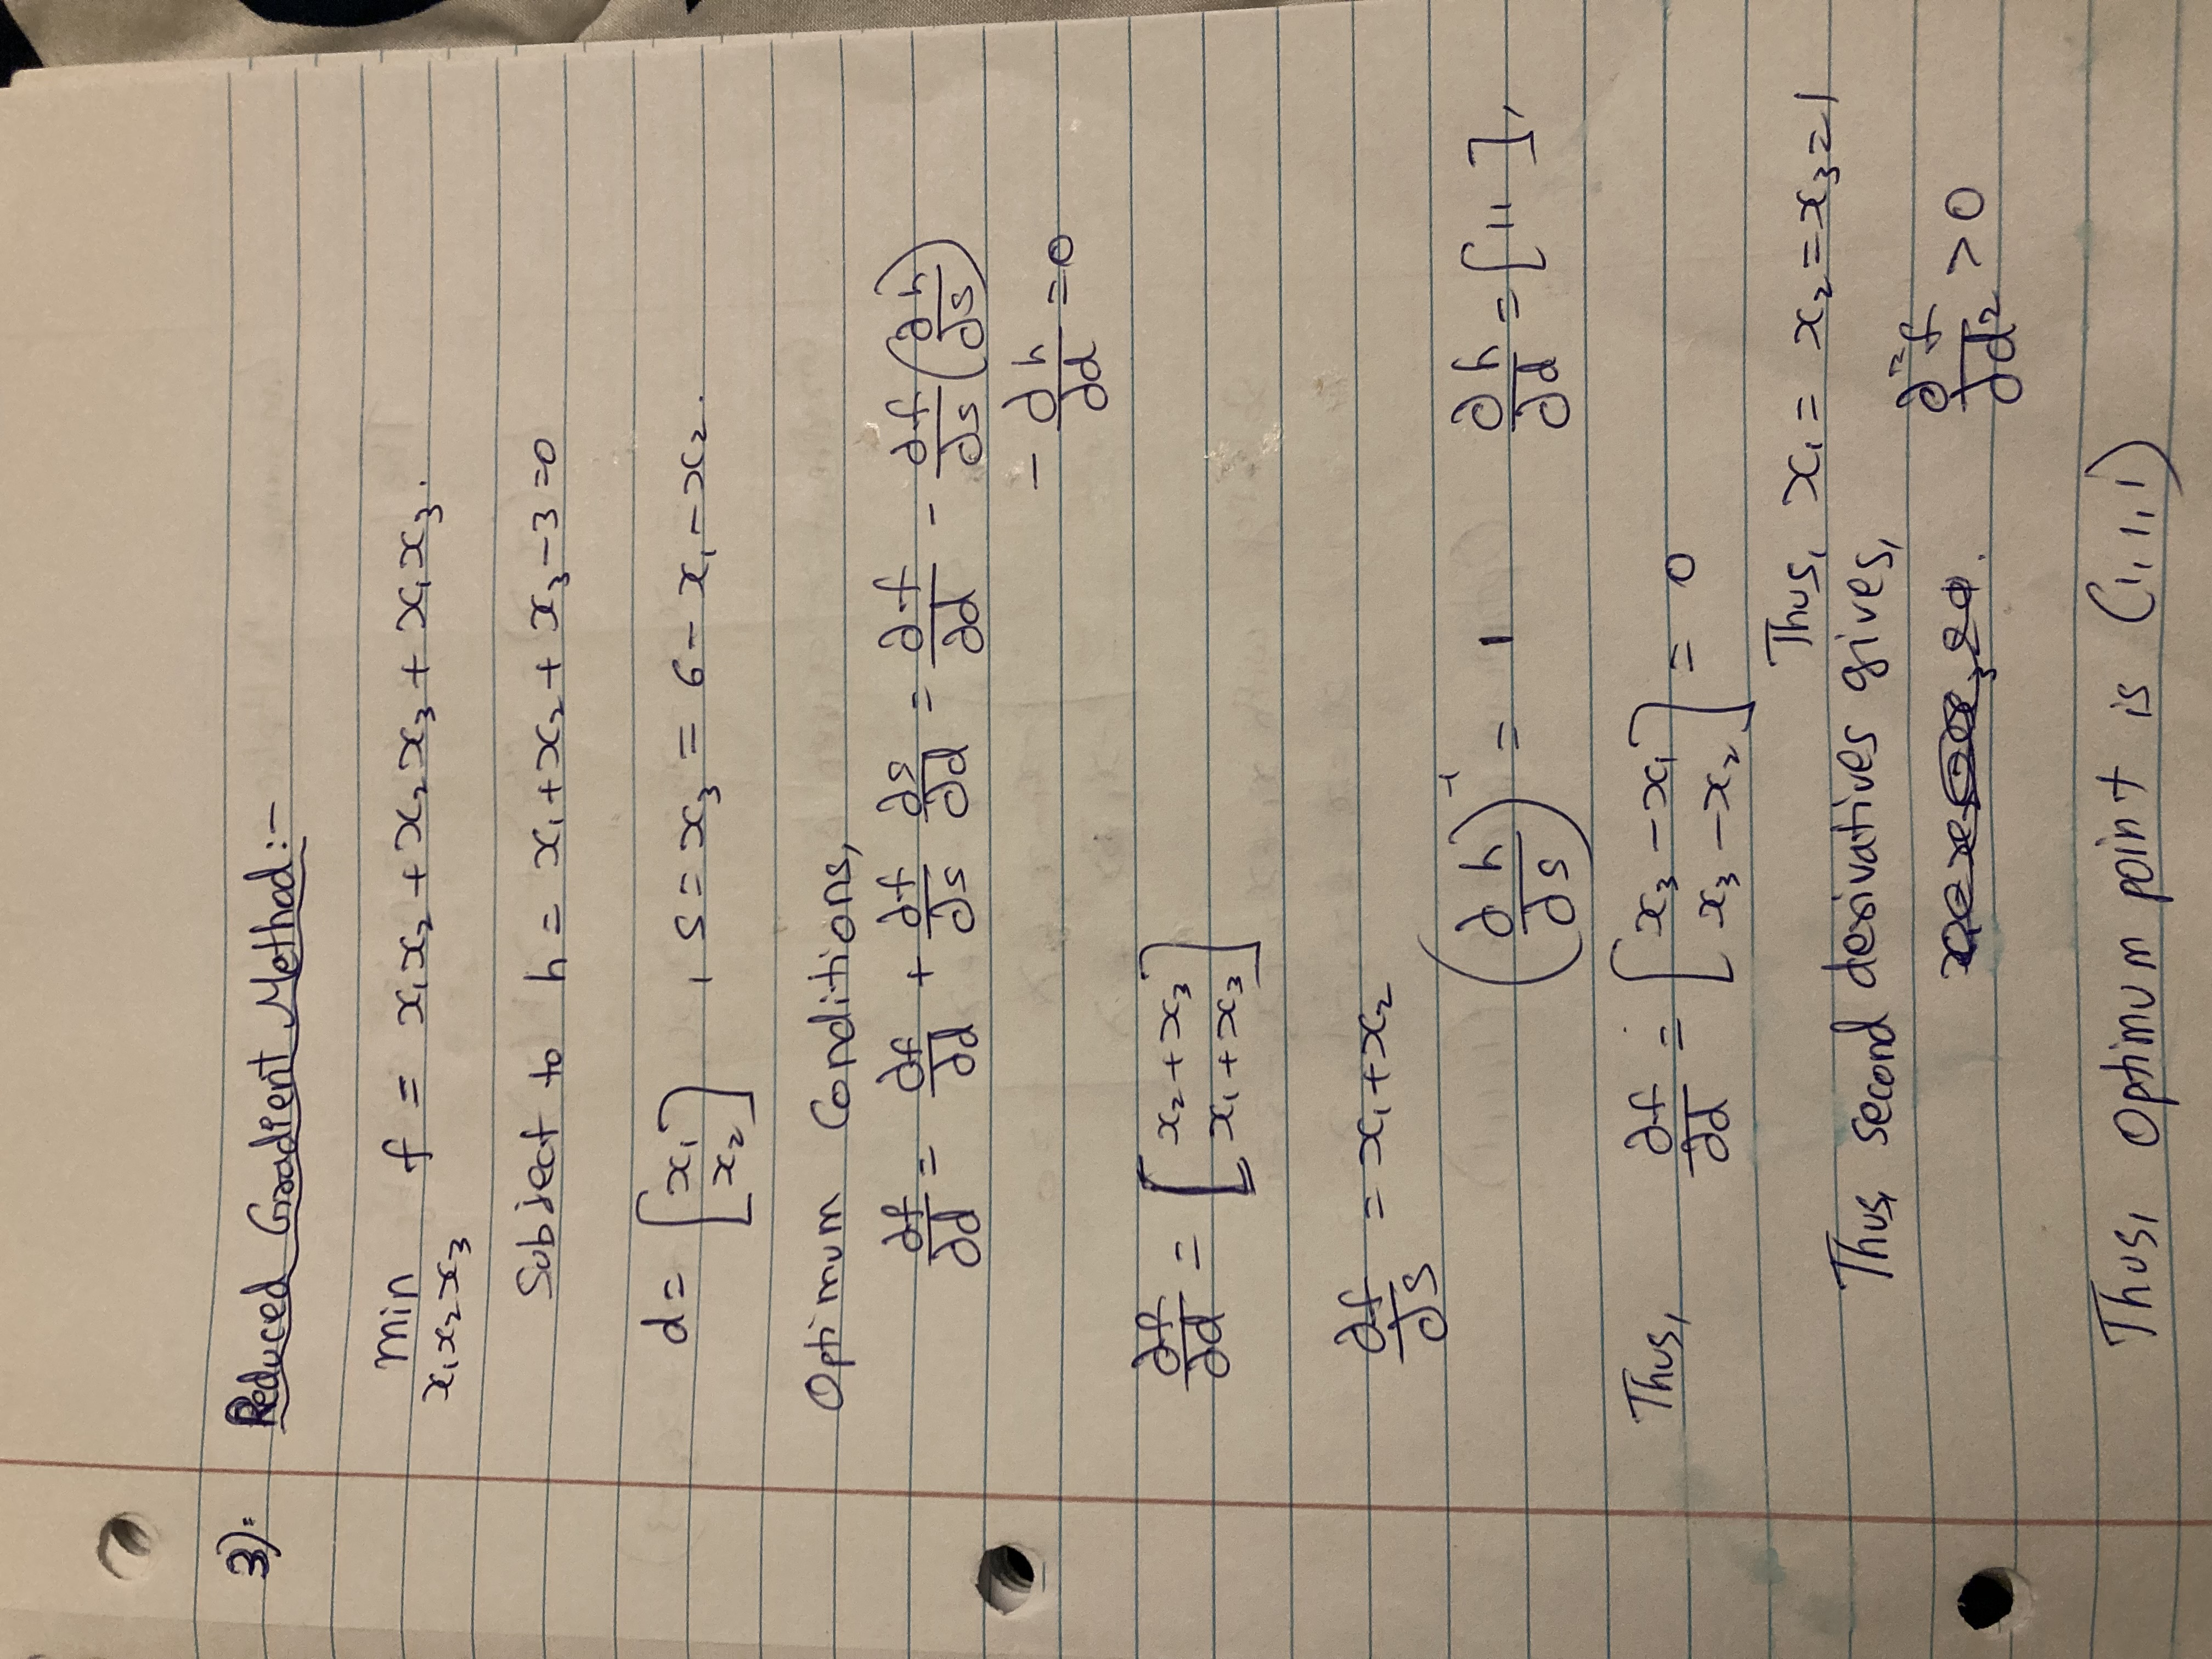 3):  Reduced Gradient Method:-
min f = x₁x₂ + x₂x₃ + x₁x₃.
x₁x₂x₃
Subject to h = x₁+x₂+ x₃-3=0
d = [x₁ x₂] , s = x₃ = 6 - x₁ - x₂.
Optimum Conditions,
∂f/∂d = ∂f/∂d + ∂f/∂s ∂s/∂d = ∂f/∂d - ∂f/∂s (∂h/∂s)
- ∂h/∂d = 0
∂f/∂d = [x₂+x₃ x₁+x₃]
∂f/∂s = x₁+x₂
(∂h/∂s)⁻¹ = 1 ∂h/∂d = [11],
Thus, ∂f/∂d = [x₃-x₁ x₃-x₂] = 0
Thus, x₁ = x₂=x₃=1
Thus, second derivatives gives,
∂²f/∂d² > 0
Thus, optimum point is (1,1,1)